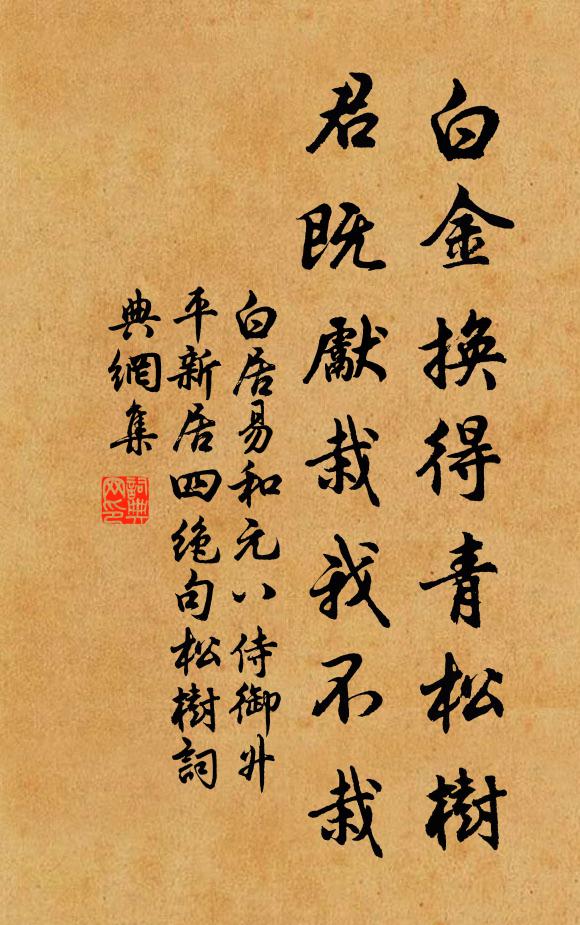 白金換得青松樹
君既獻栽我不栽
白居易和元八侍御升
平新居四絶句松樹詞
典網集
詞典
网印